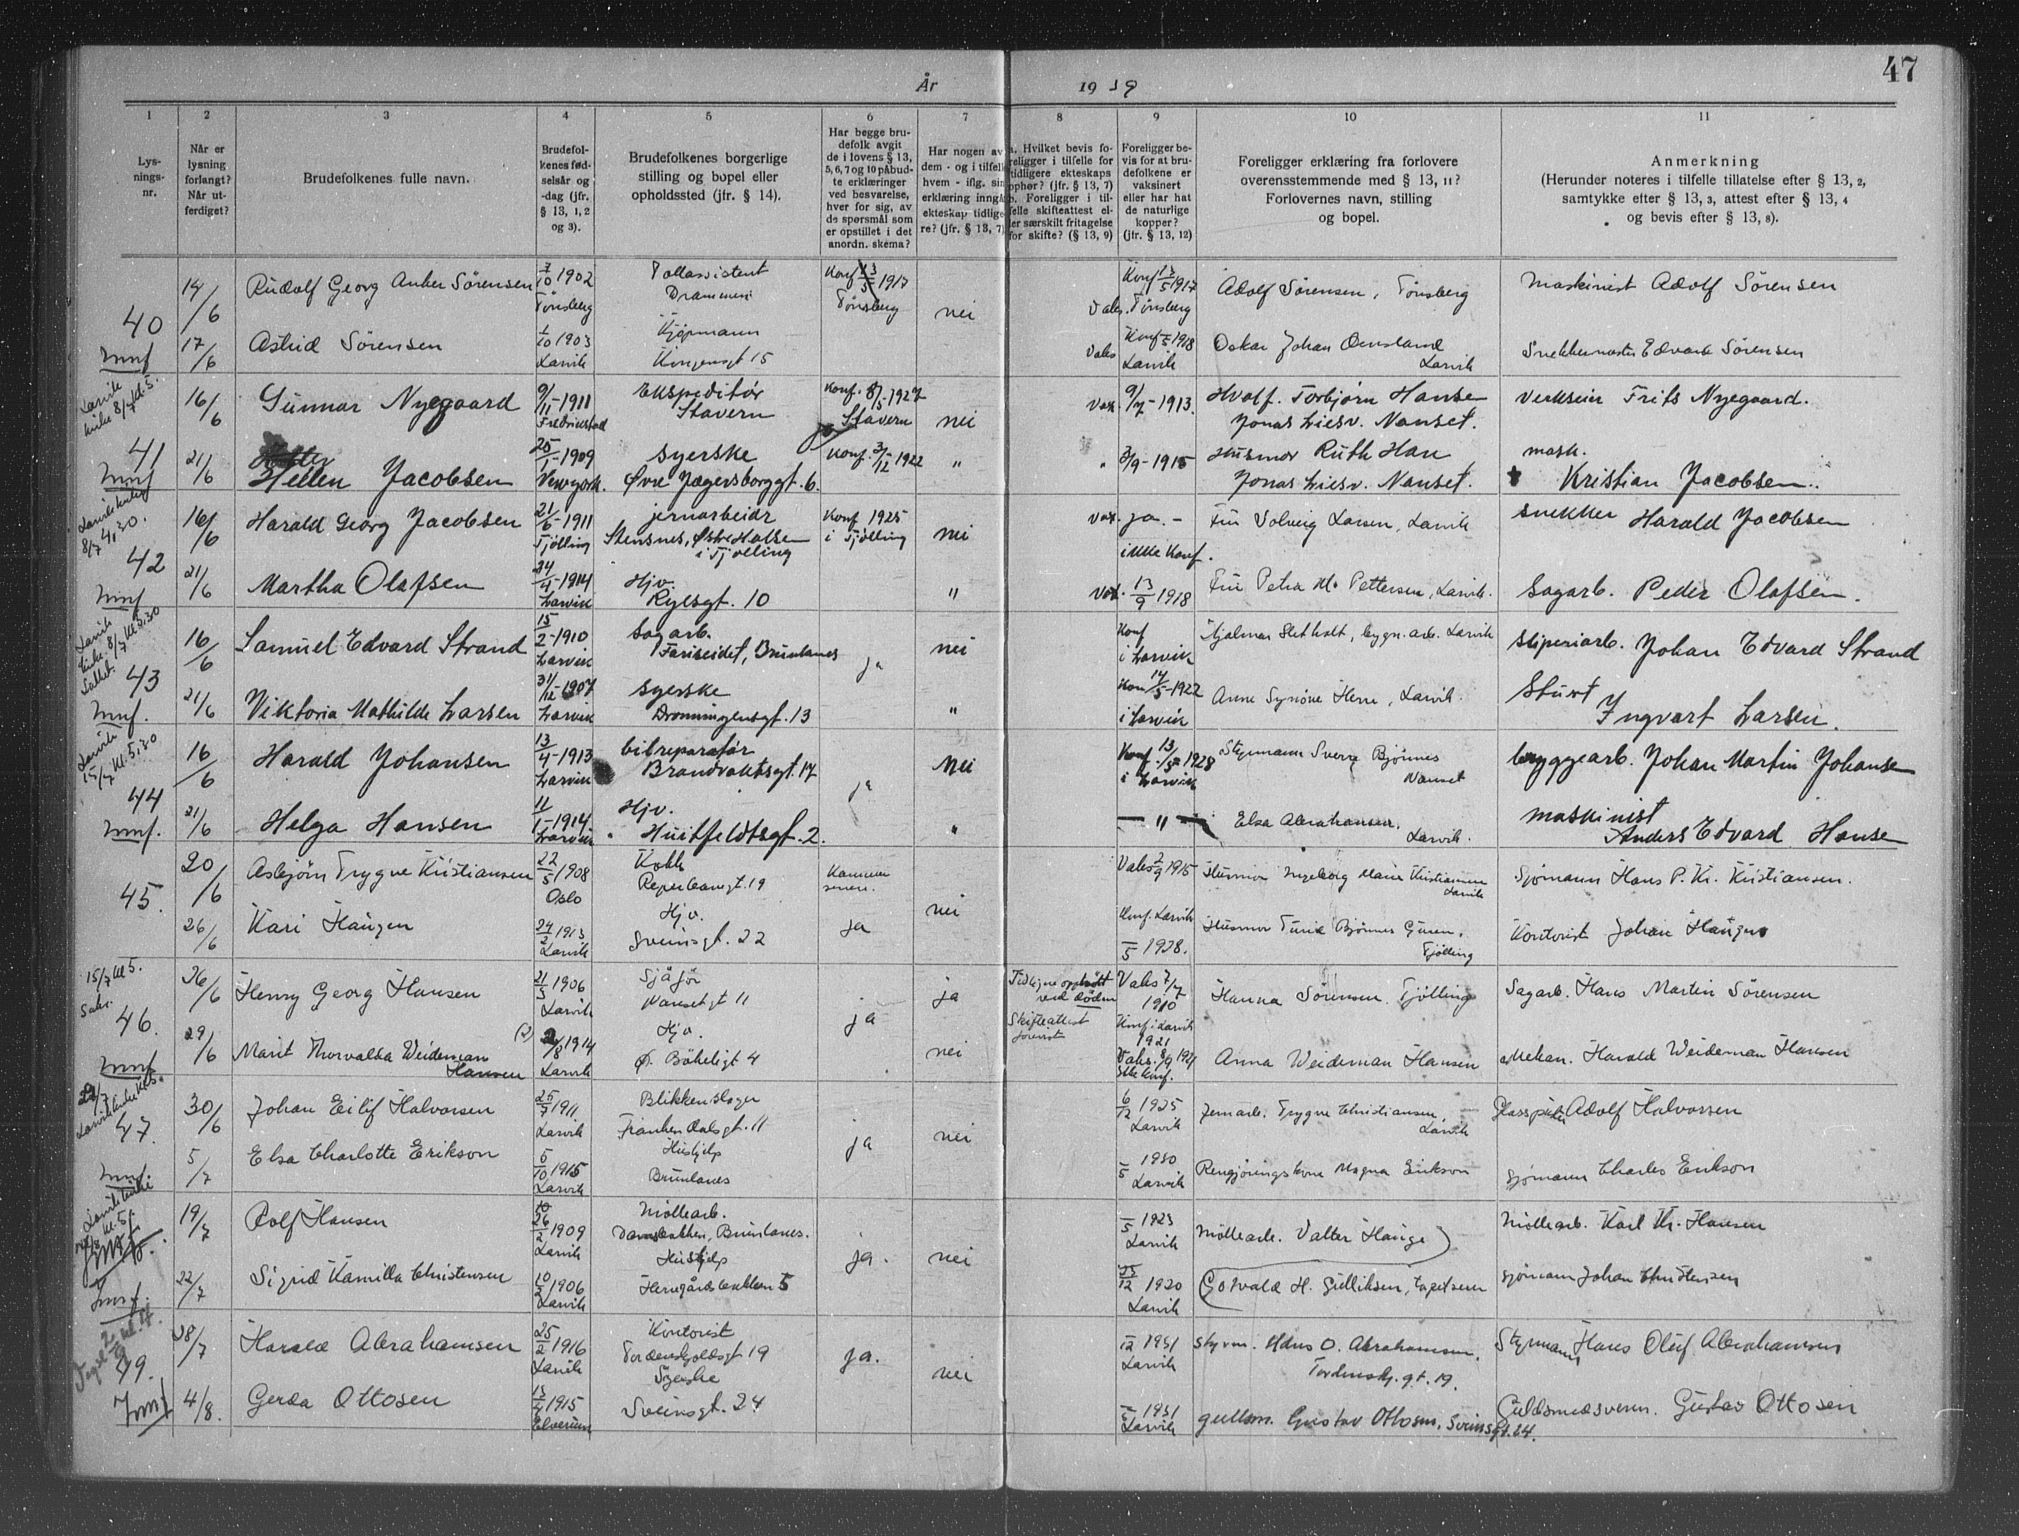 47
År 1939
1 2 3 4 5 6 7 8 9 10 11
Lys-
nings-
nr.
Når er
lysning
forlangt?
Når ut-
ferdiget?
Brudefolkenes fulle navn.
Brudefol-
kenes fød-
selsår og
-dag (jfr.
§ 13, 1, 2
og 3).
Brudefolkenes borgerlige
stilling og bopel eller
opholdssted (jfr. § 14).
Har begge bru-
defolk avgit
de i lovens § 13,
5, 6, 7 og 10 påbud-
te erklæringer
ved besvarelse,
hver for sig, av
de spørsmål som
er opstillet i det
anordn. skema?
Har nogen av
dem - og i tilfelle
hvem - iflg. sin
erklæring inngå
ekteskap tidlige-
re? (jfr. § 13, 7)
a. Hvilket bevis fo-
religger i tilfelle for
tidligere ekteskaps
ophør? (jfr. § 13, 7)
b. Foreligger i til-
felle skifteattest el-
ler særskilt fritagelse
for skifte? (§ 13, 9)
Foreligger be-
vis for at bru-
defolkene er
vaksinert
eller har hat
de naturlige
kopper?
(jfr. § 13, 12)
Foreligger erklæring fra forlovere
overensstemmende med § 13, 11?
Forlovernes navn, stilling
og bopel.
Anmerkning
(Herunder noteres i tilfelle tillatelse efter § 13, 2,
samtykke efter § 13, 3, attest efter § 13, 4
og bevis efter § 13, 8).
40
14/6 Rudolf Georg Anker Sørensen 7/10 1902 Tønsberg Tollassistent Drammen Konf 13/5 1917 Tønsberg nei Vaks. Konf 13/5 1917 Tønsberg Adolf Sørensen, Tønsberg Maskinist Adolf Sørensen
17/6 Astrid Sørensen 1/10 1903 Larvik Kongensgt 15 Vaks Konf /5 1918 Larvik Oskar Johan Larvik Snekkermester Edvard Sørensen
Larvik kirke 8/7 kl. 5.
41
16/6 Gunnar Nyegaard 9/11-1911 Fredrikstad Ekspeditør Stavern Konf. 8/5-1927 Stavern nei Vax. 9/7-1913. Torbjørn Hansen Jonas Liesv. Nanset. Verkseier Frits Nyegaard.
21/6 Hellen Jacobsen 25/1-1909 Newyork. syerske Øvre Jægersborggt. 6. Konf. 3/12-1922 " " 3/9-1915 Husmor Ruth Han Jonas Liesv. Nanset. mask. Kristian Jacobsen.
Larvik kirke 8/7 4,30.
42
16/6 Harald Georg Jacobsen 21/6-1911 Tjølling jernarbeidr Stensnes, Østre Halsen i Tjølling Konf 1925 i Tjølling nei Vax. ja. - ikke Konf. Fru Solveig Larsen, Larvik snekker Harald Jacobsen
21/6 Martha Olafsen 24/4-1914 Larvik Hjv. Ryesgt. 10 " Vax. 13/9 1918 Fru Petra M. Pettersen, Larvik. Sagarb. Peder Olafsen.
Larvik kirke 8/7 kl 5.30
43
16/6 Samuel Edvard Strand 15/2-1910 Larvik sagarb. Fariseidet, Brunlanes ja nei Konf i Larvik Hjalmar Sletholt, bygn. arb. Larvik sliperiarb. Johan Edvard Strand
21/6 Viktoria Mathilde Larsen 31/12-1907 Larvik syerske Dronningensgt. 13 " Konf 14/5-1922 i Larvik Anne Synøve Herre, Larvik. Stuert Ingvart Larsen.
Larvik 15/7 kl. 5,30
44
16/6 Harald Johansen 13/4-1913 Larvik bilreparatør Brandvaktsgt. 17 ja Nei Konf. 13/5-1928 i Larvik Styrmann Sverre Bjønnes Nanset bryggearb. Johan Martin Johanse
21/6 Helga Hansen 11/1-1914 Larvik Hjv. Huitfeldtsgt. 2. " — " — Elsa Abrahamsen. Larvik. maskinist Anders Edvard Hanse
45.
20/6 Asbjørn Trygve Kristiansen 22/5 1908 Oslo Kokk Reperbanegt. 19 Kommer senere. nei Vaks 2/9 1915 Husmor Ingeborg Marie Kristiansen Larvik Sjømann Hans P. Kr. Kristiansen.
26/6 Kari Haugen 24/2 1913 Larvik Hjv. Sveinsgt. 22 ja Konf. Larvik /5 1928. Husmor Turid Bjønnes Tjølling Kontorist Johan Haugen
15/7 kl 5.
46.
26/6 Henry Georg Hansen 21/5 1906 Larvik Sjåfør Nansetgt 11 ja ja Tidligere opphørt ved døden Skifteattest forevist Vaks 7/7 1910 Konf i Larvik 1921 Hanna Sørensen. Tjølling Sagarb. Hans Martin Sørensen
29/6 Marit Thorvalda Weideman Hansen 2/8 1914 Larvik Hjv. Ø. Bøkeligt 4 nei Vaks. 8/9 1921 Ikke konf. Anna Weideman Hansen Mekan. Harald Weideman Hansen
Larvik kirke kl 5.
47.
30/6 Johan Eilif Halvorsen 25/7 1911. Larvik Blikkenslager Frankendalsgt. 11 ja nei 6/12 1925 Larvik Jernarb. Trygve Christiansen, Larvik Adolf Halvorsen
5/7 Elsa Charlotte Erikson 5/10 1915 Larvik Hushjelp Brunlanes /5 1930 Larvik Rengjøringskone Magna Erikson Sjømann Charles Erikson
Larvik kirke
19/7 Rolf Hansen 26/2 1909 Larvik Møllearb. Brunlanes. ja. nei /5 1923 Larvik Møllearb. Valter Hauge Møllearb. Karl Kr. Hansen
22/7 Sigrid Kamilla Christensen 10/2 1906 Larvik Hushjelp Herregårdsbakken 5 12 1920 Larvik Gotvald H. Gulliksen, Sjømann Johan Christensen
49.
28/7 Harald Abrahamsen 25/2 1916 Larvik Kontorist Tordenskjoldsgt 19 ja. nei /12 1931 Larvik styrm. Hans O. Abrahamsen. Tordenskj. gt. 19. Styrmann Hans Oluf Abrahamsen
4/8. Gerda Ottosen 13/4 1915 Elverum Syerske Sveinsgt. 24 /5 1931 Larvik gullsm. Gustav Ottosen, Sveinsgt. 24. Guldsmedsvenn. Gustav Ottosen